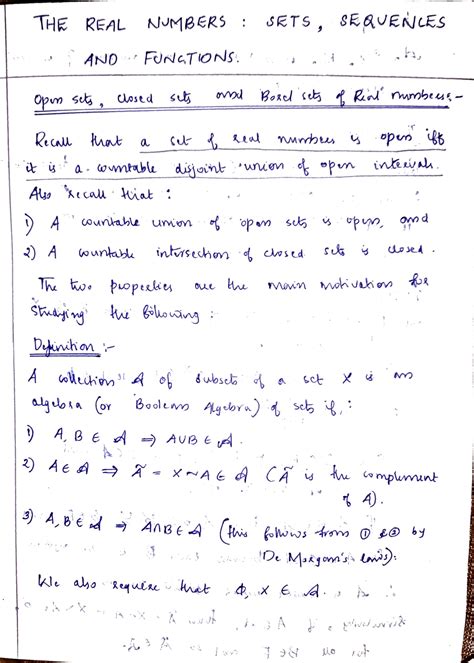 THE REAL NUMBERS : SETS, SEQUENCES
AND FUNCTIONS.
Open sets, closed sets and Borel sets of Real numbers:-
Recall that a set of real numbers is open iff
it is a countable disjoint union of open intervals.
Also recall that :
1) A countable union of open sets is open, and
2) A countable intersection of closed sets is closed.
The two properties are the main motivation for
studying the following :
Definition :-
A collection A of subsets of a set X is an
algebra (or Boolean Algebra) of sets if, :
1) A, B ∈ A ⇒ A∪B ∈ A.
2) A ∈ A ⇒ Ã = X ~ A ∈ A (Ã is the complement
of A).
3) A, B ∈ A ⇒ A∩B ∈ A (this follows from ① & ② by
De Morgan's laws).
We also require that ϕ, X ∈ A.